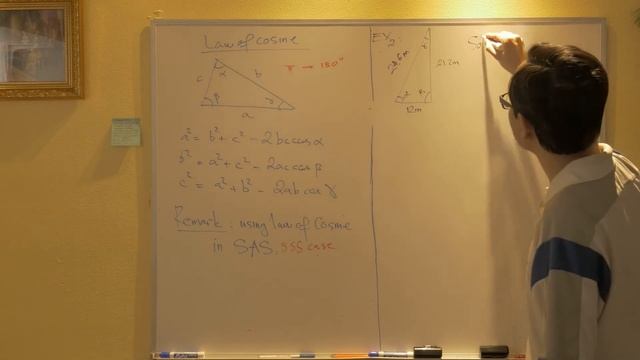 Law of cosine
π → 180°
c
α
b
β
γ
a
a² = b² + c² - 2bc cos α
b² = a² + c² - 2ac cos β
c² = a² + b² - 2ab cos γ
Remark: using law of Cosine
in SAS, SSS case
EX 2:
21.2m
12m